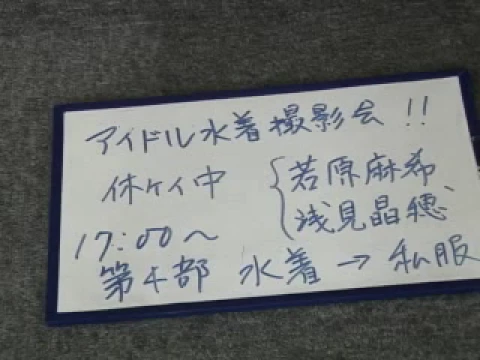 アイドル水着撮影会!!
休ケイ中 { 若原麻希
浅見晶穂
17:00〜
第4部 水着→私服